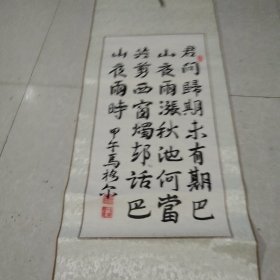 君问歸期未有期巴
山夜雨漲秋池何當
共剪西窗燭却話巴
山夜雨時
甲午馬格尔